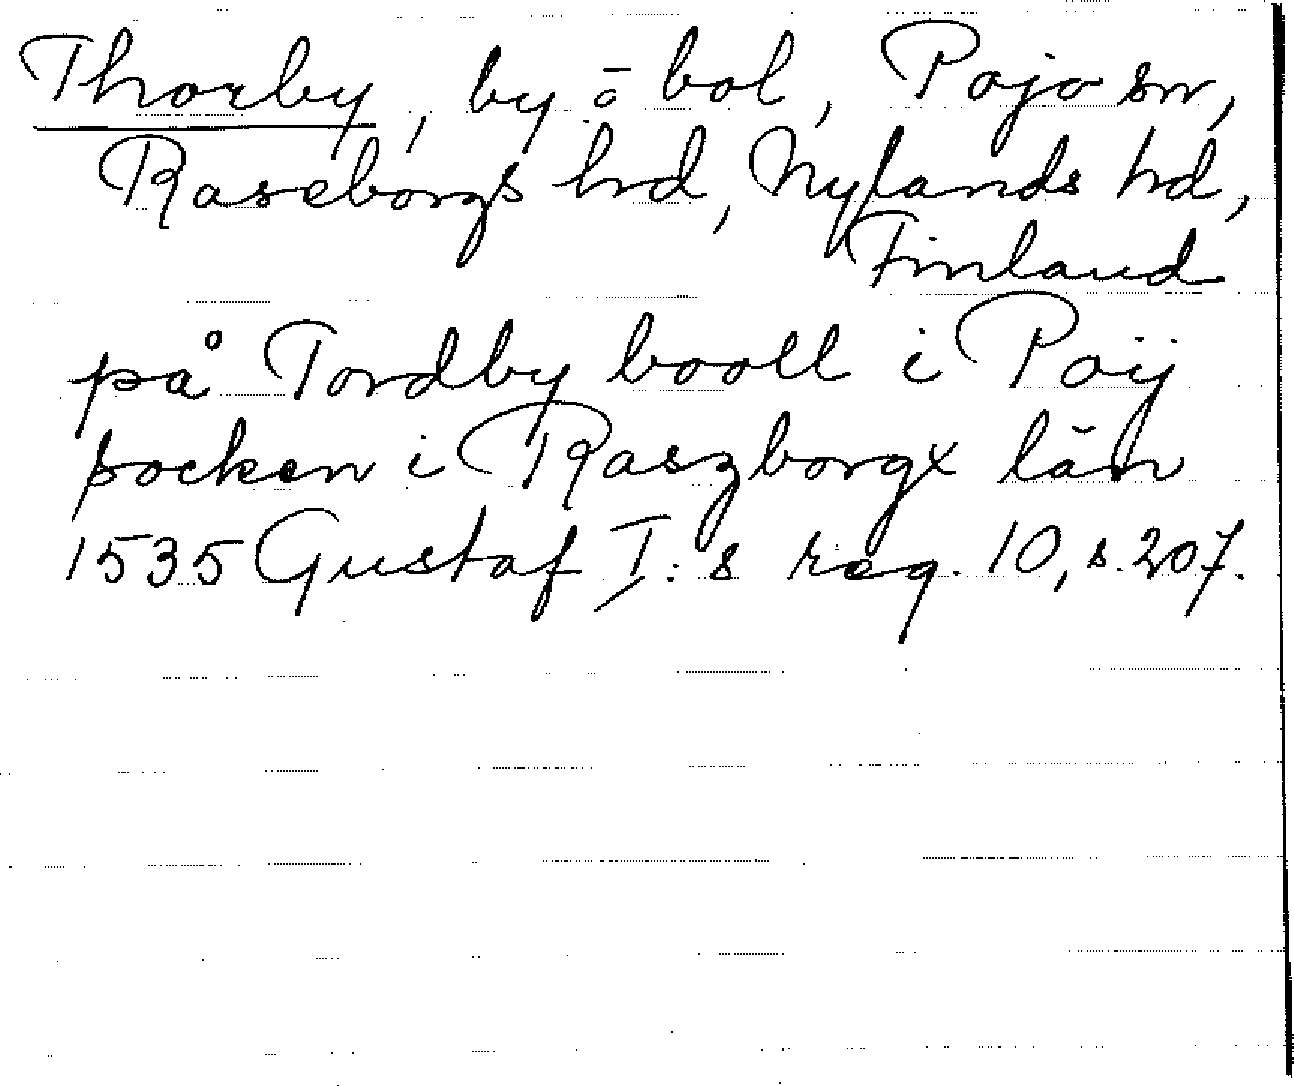 Thorby, by o bol, Pojo sn,
Raseborgs hd, Nylands hd,
Finland
på Tordby booll i Poij
socken i Raszborgx län
1535 Gustaf I:s reg. 10, s. 207.